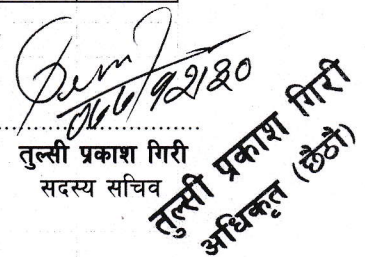 तुल्सी प्रकाश गिरी
सदस्य सचिव
तुल्सी प्रकाश गिरी
अधिकृत (छैठौं)